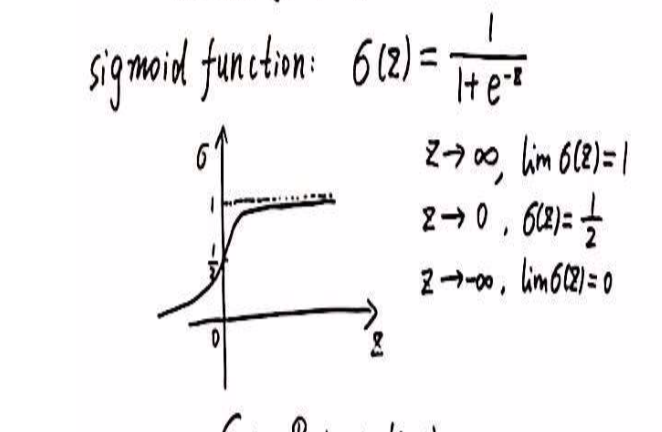 sigmoid function: σ(z) = 1/(1+e^-z)
σ
1
1/2
0
z
z→∞, lim σ(z)=1
z→0, σ(z)=1/2
z→-∞, lim σ(z)=0